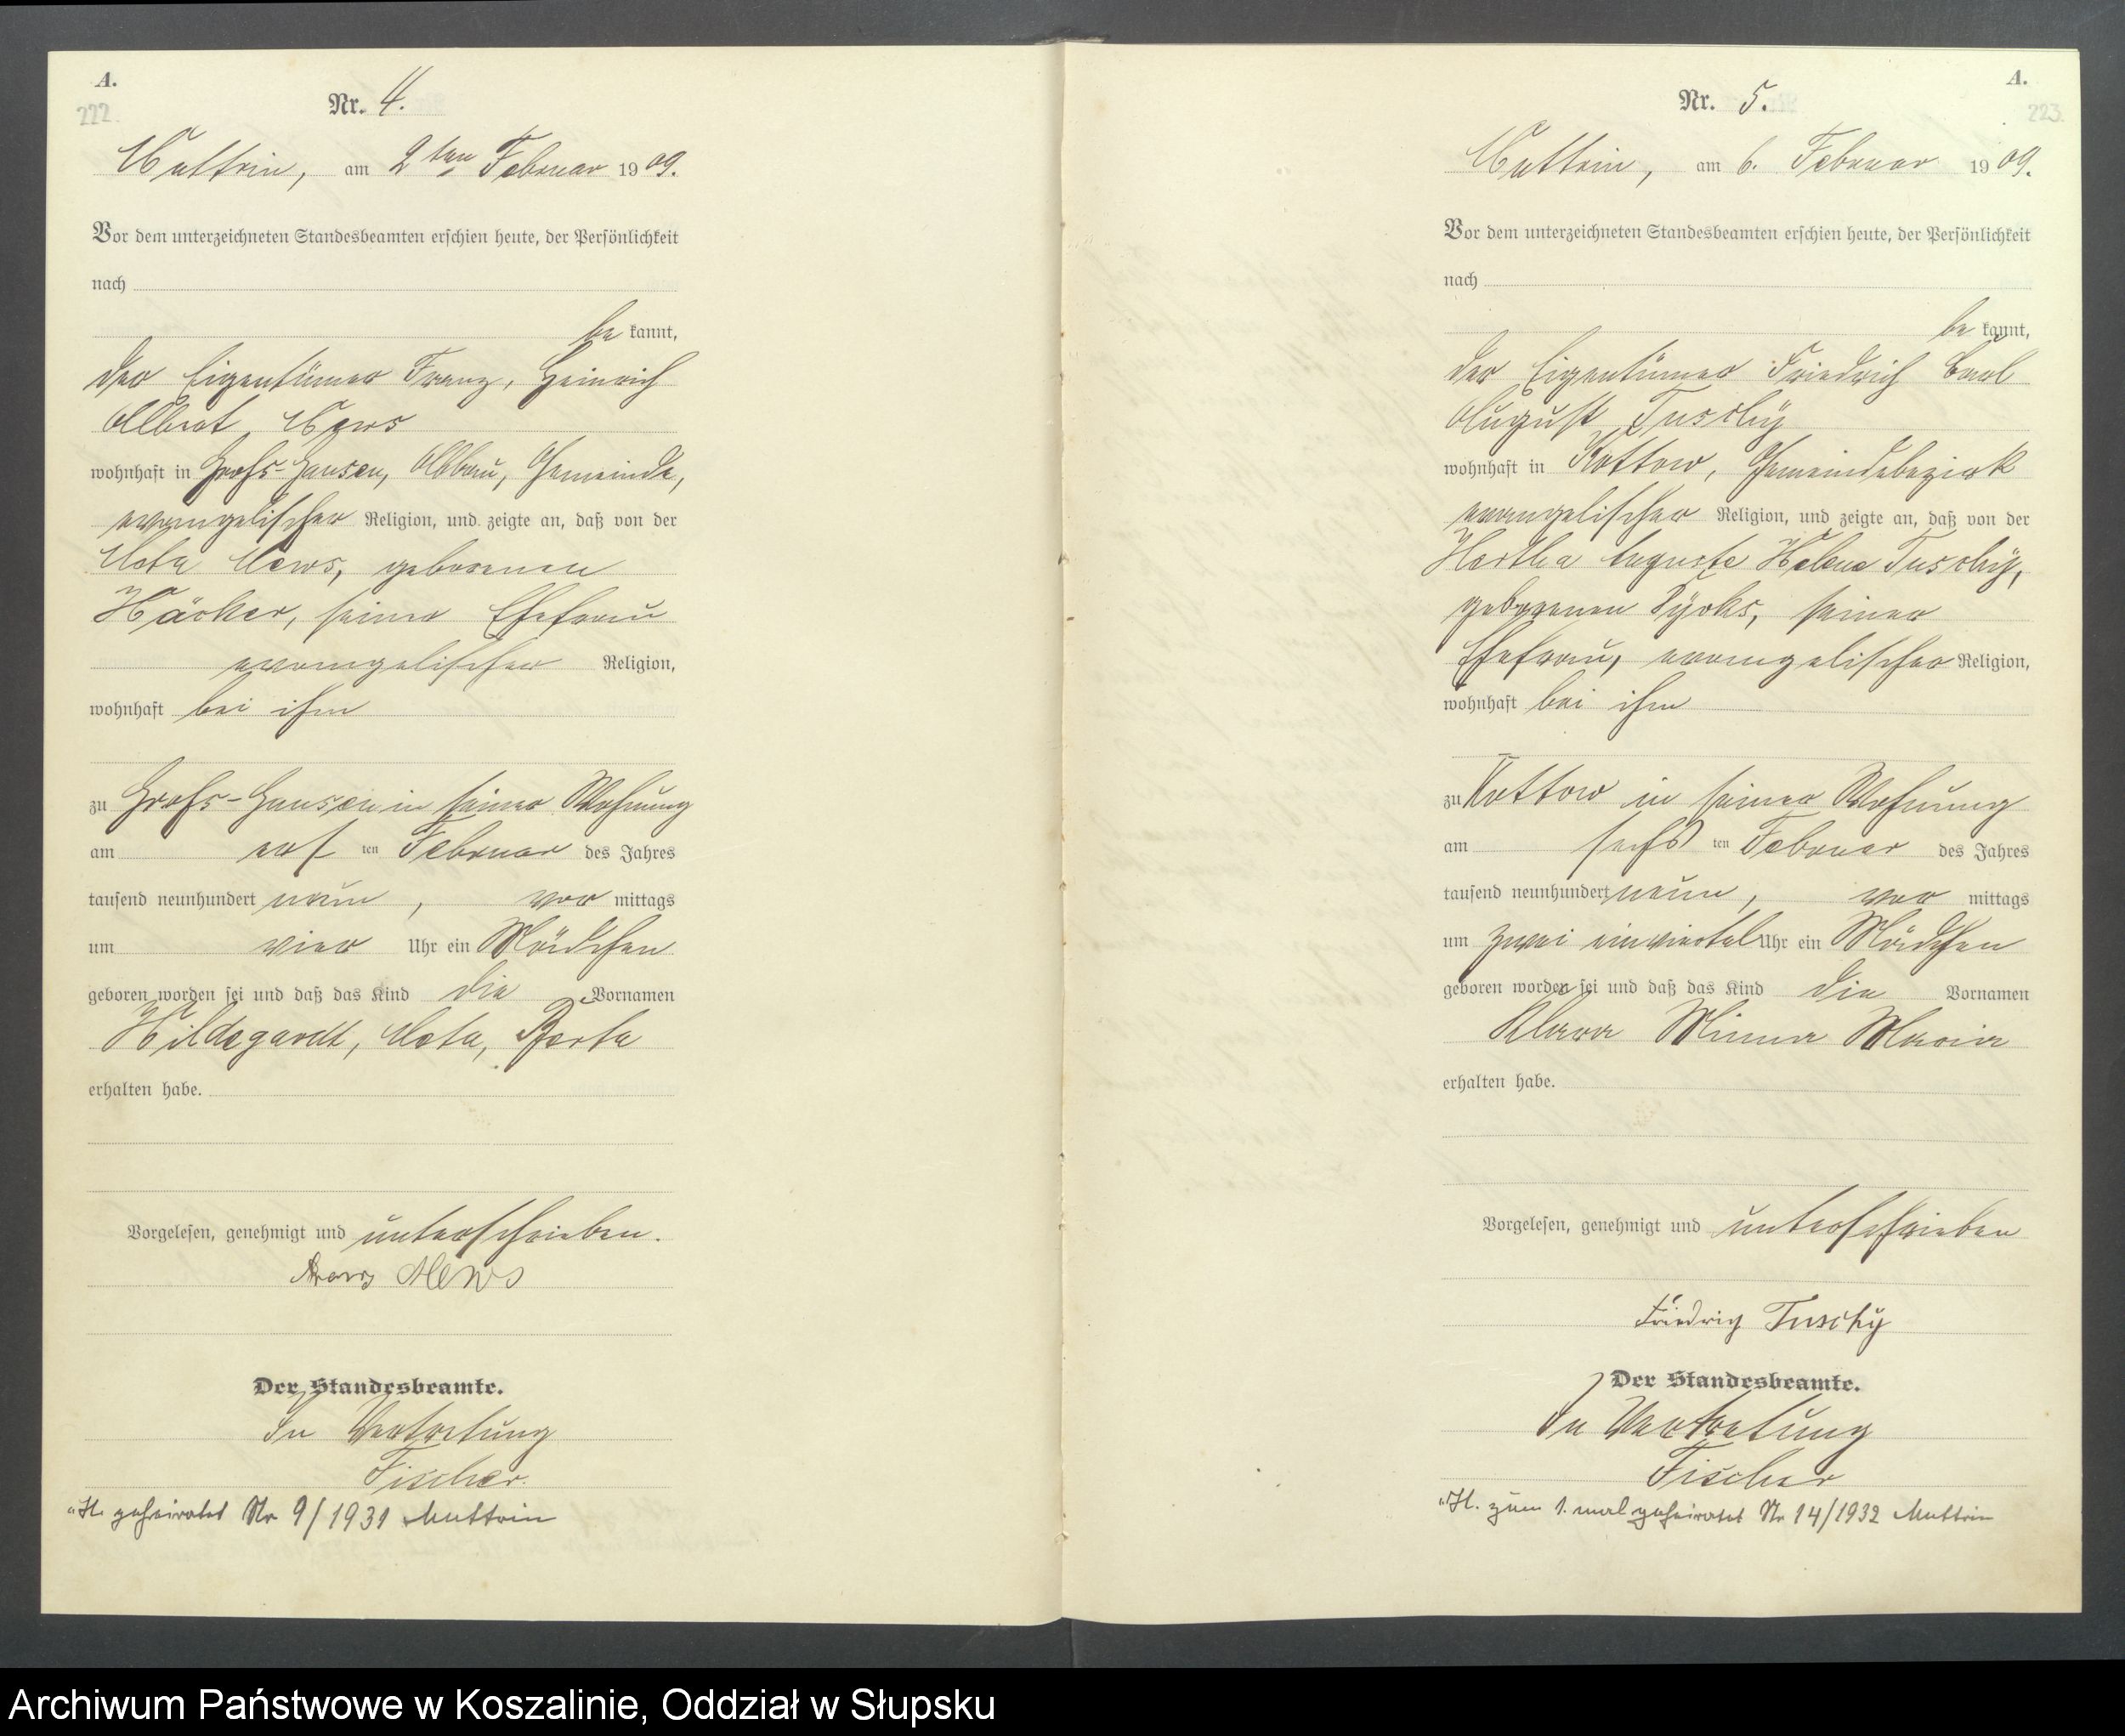 A.
222.
Nr. 4.
Muttrin, am 2ten Februar 1909.
Vor dem unterzeichneten Standesbeamten erschien heute, der Persönlichkeit
nach
be kannt,
der Eigentümer Franz, Heinrich
Albert Mews
wohnhaft in Groß-Gansen, Abbau, Gemeinde,
evangelischer Religion, und zeigte an, daß von der
Meta Mews, geborenen
Häcker, seiner Ehefrau
evangelischer Religion,
wohnhaft bei ihm
zu Groß-Gansen in seiner Wohnung
am ersten Februar des Jahres
tausend neunhundert neun, vor mittags
um vier Uhr ein Mädchen
geboren worden sei und daß das Kind die Vornamen
Hildegardt, Meta, Berta
erhalten habe.
Vorgelesen, genehmigt und unterschrieben.
Franz Mews
Der Standesbeamte.
In Vertretung
Fischer.
"H. geheiratet Nr 9/1931 Muttrin
A.
223.
Nr. 5.
Muttrin, am 6. Februar 1909.
Vor dem unterzeichneten Standesbeamten erschien heute, der Persönlichkeit
nach
be kannt,
der Eigentümer Friedrich Carl
August Tuschy
wohnhaft in Kottow, Gemeindebezirk
evangelischer Religion, und zeigte an, daß von der
Hertha Auguste Helene Tuschy,
geborenen seiner
Ehefrau, evangelischer Religion,
wohnhaft bei ihm
zu Kottow in seiner Wohnung
am sechsten Februar des Jahres
tausend neunhundert neun, vor mittags
um zwei einviertel Uhr ein Mädchen
geboren worden sei und daß das Kind die Vornamen
Klara Minna Maria
erhalten habe.
Vorgelesen, genehmigt und unterschrieben
Friedrich Tuschy
Der Standesbeamte.
In Vertretung
Fischer
"H. zum 1. mal geheiratet Nr 14/1932 Muttrin
Archiwum Państwowe w Koszalinie, Oddział w Słupsku